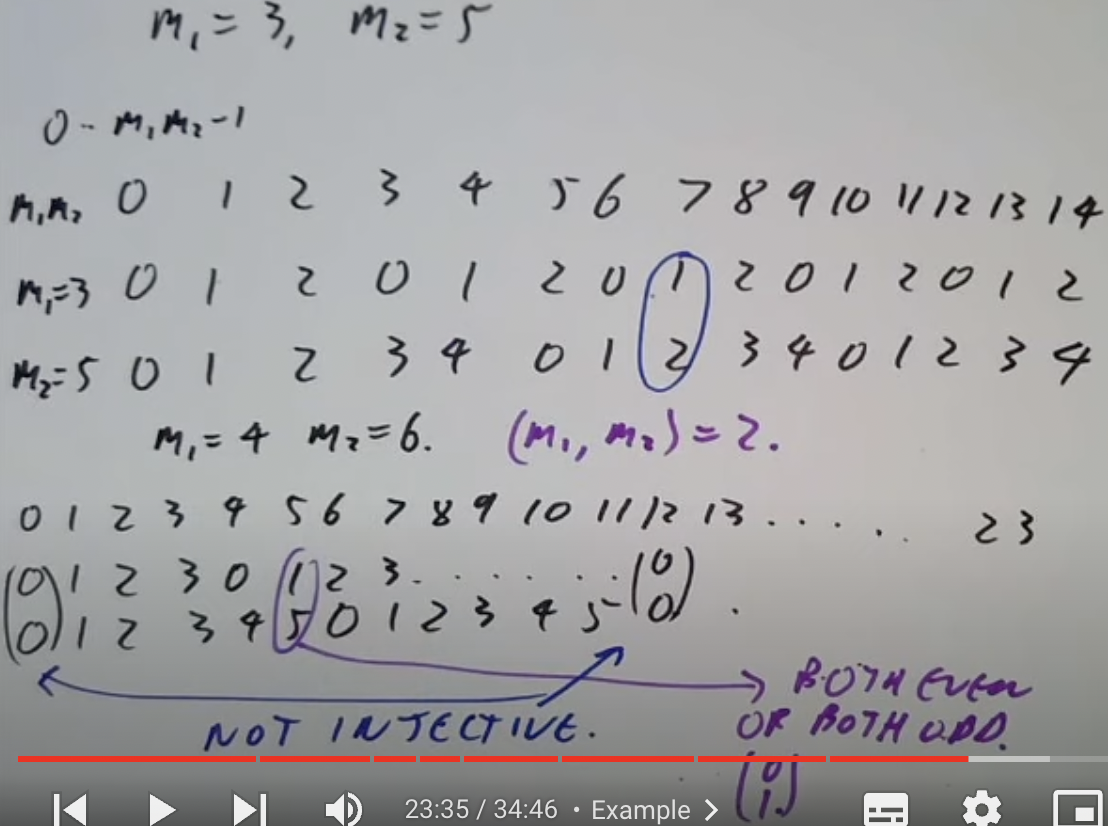 m₁ = 3, m₂ = 5
0 -- m₁m₂ - 1
m₁m₂ 0 1 2 3 4 5 6 7 8 9 10 11 12 13 14
m₁=3 0 1 2 0 1 2 0 1 2 0 1 2 0 1 2
m₂=5 0 1 2 3 4 0 1 2 3 4 0 1 2 3 4
m₁ = 4 m₂ = 6. (m₁, m₂) = 2.
0 1 2 3 4 5 6 7 8 9 10 11 12 13 ..... 23
(0 1 2 3 0 1 2 3 ...... (0
0) 1 2 3 4 5 0 1 2 3 4 5 0) .
BOTH EVEN
NOT INJECTIVE. OR BOTH ODD.
(0
1.)
23:35 / 34:46 • Example >